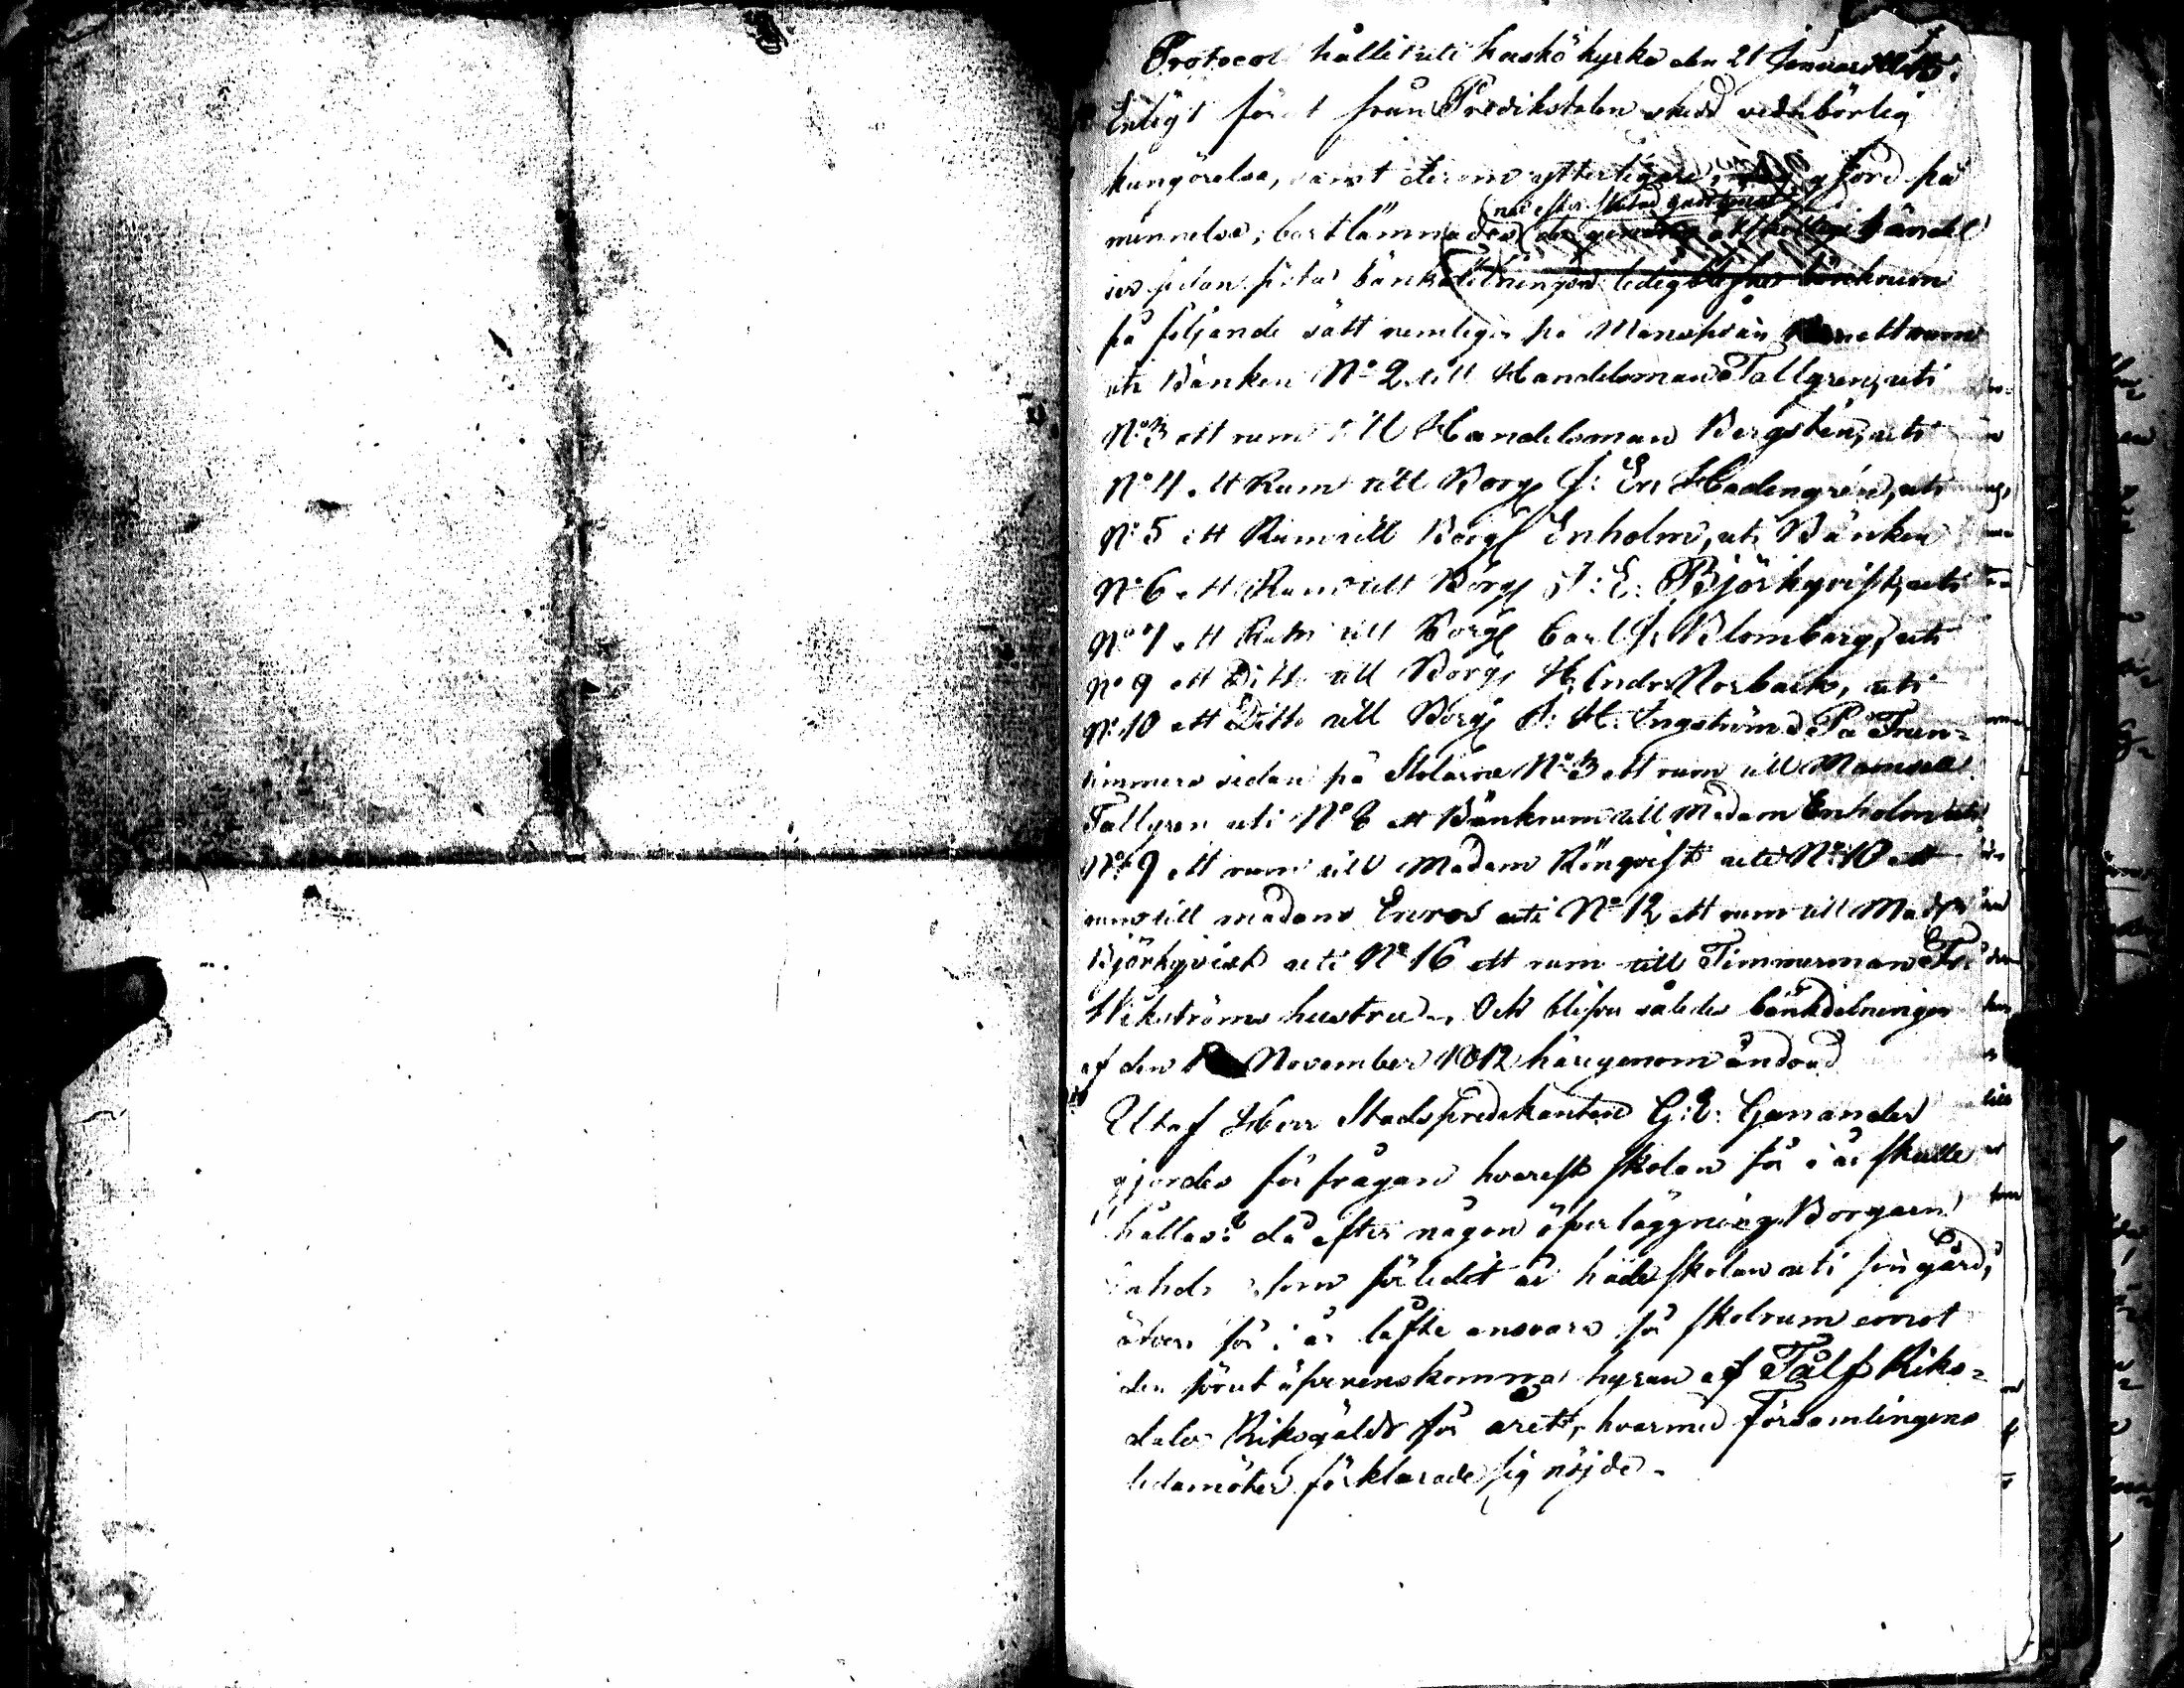 Protocol hållit uti Kaskö kyrka den 21 Januari
Enligt förut från Predikstolen skedd vederbörlig
kungörelse, samt derom ytterligare gjord på
minnelse, bortlämnades
(nu efter skedd
sedan sista bänkdelningen ledig blefne bänkrum
på följande sätt nemligen på Manspersons ett rum
uti Bänken No 2 till Handelsman Tallgren, uti
No 3 ett rum till Handelsman Bergsten, uti
No 4 ett Rum till Borg J: Er: Hedengren, uti
No 5 ett Rum till Borg Enholm, uti Bänken
No 6 ett Rum till Borg J: E: Björkqvist, uti
No 7 ett Rum till Borg Carl J: Blomberg, uti
No 9 ett Ditto till Borg H: Norback, uti
No 10 ett Ditto till Borg J: H: Engström. På Frun=
timmers sidan på Stolarne No 3 ett rum till Mamsell
Tallgren uti No 8 ett Bänkrum till Madam Enholm uti
No 9 ett rum till Madam Rönqvist uti No 10 ett
rum till madam Enros uti No 12 ett rum till Mad
Björkqvist uti No 16 ett rum till Timmerman Fr:
Wikströms hustru. Och blifver således bänkdelningen
af den November 1812 härigenom ändrad
Utaf Herr Stadspredikanten G: E: Ganander
gjordes förfrågan hvarest skolan för i år skulle
hållas? då efter någon öfverläggning Borgaren
som förledit år hade skolan uti sin gård,
äfven för i år lofte ansvara för skolrum emot
den förut öfverenskomna hyran af Tolf Riks=
daler Riksgälds för året, hvarmed Församlingens
ledamöter förklarade sig nöjde.